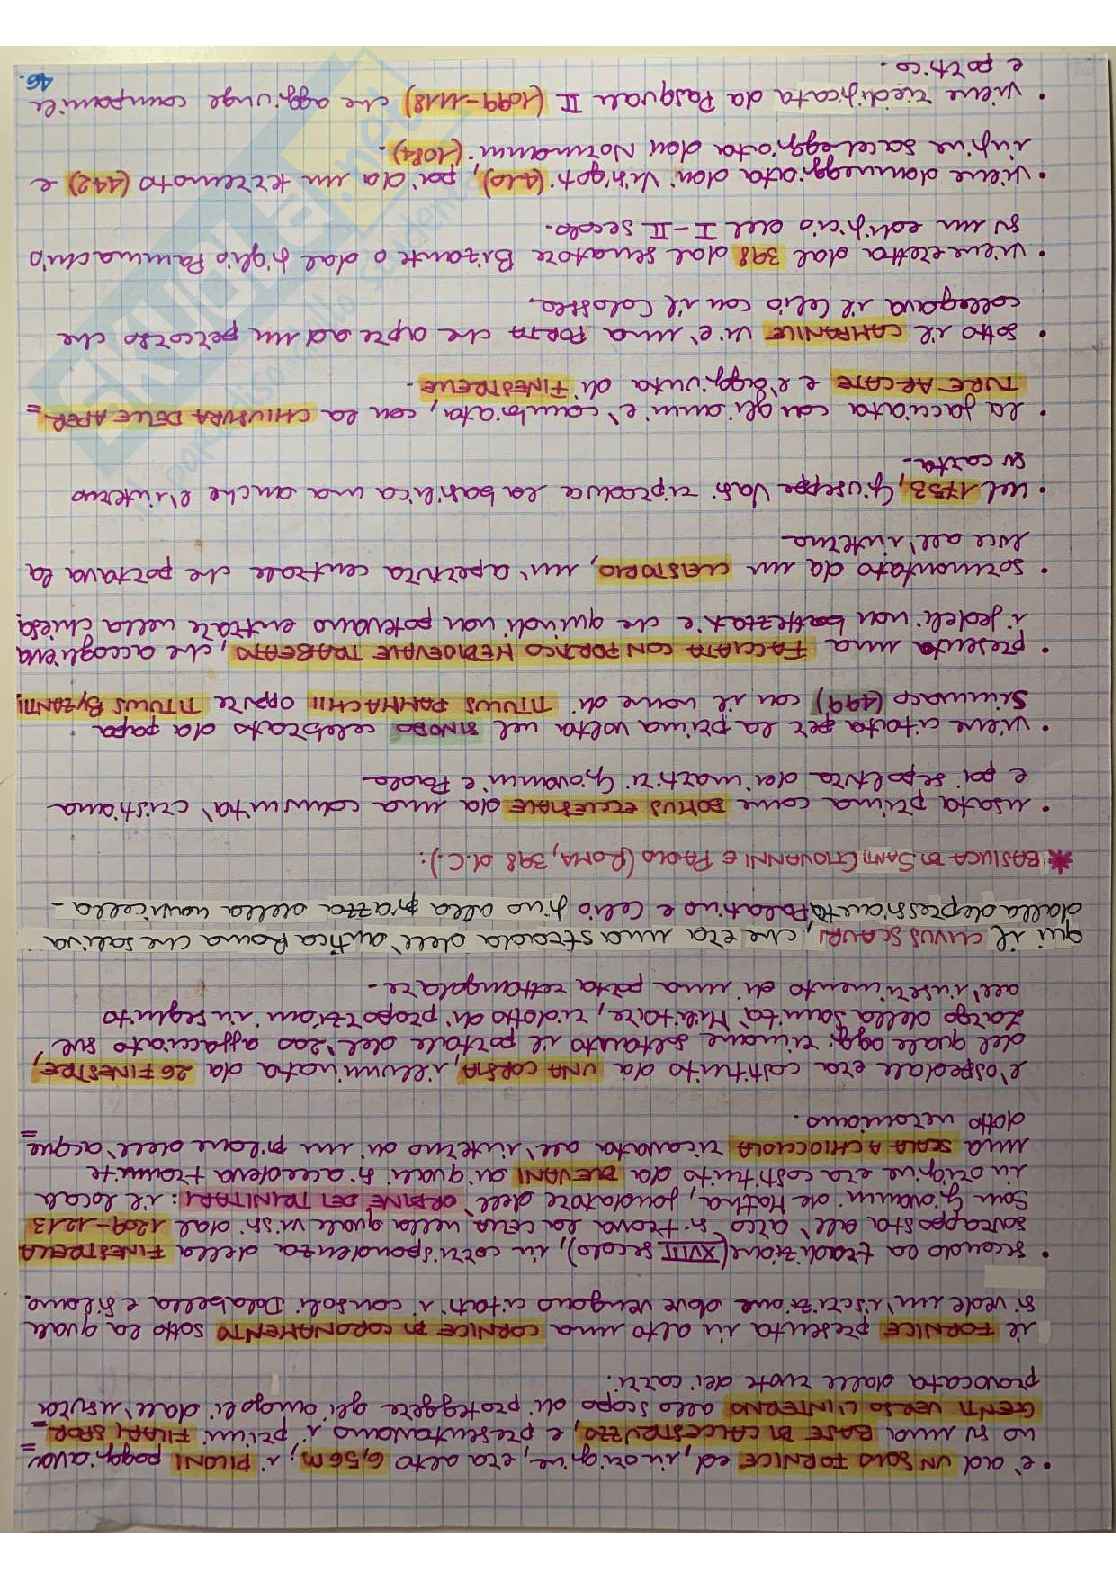 • è ad UN SOLO FORNICE ed, in origine, era alto 6,56 m; i PILONI poggiava=
no su una BASE DI CALCESTRUZZO, e presentavano i primi FILARI SPOR=
GENTI VERSO L'INTERNO allo scopo di proteggere gli angoli dall'usura
provocata dalle ruote dei carri.
il FORNICE presenta in alto una CORNICE DI CORONAMENTO sotto la quale
si vede un'iscrizione dove vengono citati i consoli Dolabella e Silano.
• secondo la tradizione (XVIII secolo), in corrispondenza della FINESTRELLA
sovrapposta all'arco si trova la CELLA nella quale visse dal 1209-1213
San Giovanni de Matha, fondatore dell'ORDINE DEI TRINITARI: il locale
in origine era costituito da DUE VANI ai quali si accedeva tramite
una SCALA A CHIOCCIOLA ricavata all'interno di un pilone dell'acque=
dotto neroniano.
l'ospedale era costituito da UNA CORSIA, illuminata da 26 FINESTRE,
del quale oggi rimane soltanto il portale dell'200 affacciato sul
Largo della Sanità Militare, ridotto di proporzioni in seguito
all'inserimento di una porta rettangolare.
qui il CLIVUS SCAURI, che era una strada dell'antica Roma che saliva
dalla depressione tra Palatino e Celio fino alla piazza della navicella.
* BASILICA DI SANTI GIOVANNI E PAOLO (ROMA, 398 d.C.):
• usata prima come DOMUS ECCLESIALE da una comunità cristiana
e poi sepoltura dei martiri Giovanni e Paolo.
• viene citata per la prima volta nel SINODO celebrato da papa
Simmaco (499) con il nome di TITULUS PAMMACHII oppure TITULUS BYZANTII.
• presenta una FACCIATA CON PORTICO MEDIOEVALE TRABEATO, che accoglieva
i fedeli non battezzati e che quindi non potevano entrare nella chiesa,
• sormontato da un CLEISTORIO, un'apertura centrale che portava la
luce all'interno.
• nel 1753, Giuseppe Vasi riproduce la basilica ma anche l'interno
su carta.
• la facciata con gli anni è cambiata, con la CHIUSURA DELLE APER=
TURE ARCATE e l'aggiunta di FINESTRELLE.
• sotto il CAMPANILE vi è una PORTA che apre ad un percorso che
collegava il Celio con il Colosseo.
• viene eretta dal 398 dal senatore Bizante o dal figlio Pammachio
su un edificio del I-II secolo.
• viene danneggiata dai Visigoti (410), poi da un terremoto (442) e
infine saccheggiata dai Normanni. (1084).
• viene riedificata da Pasquale II (1099-1118) che aggiunge campanile
e portico.
46.
SKUOLA.net